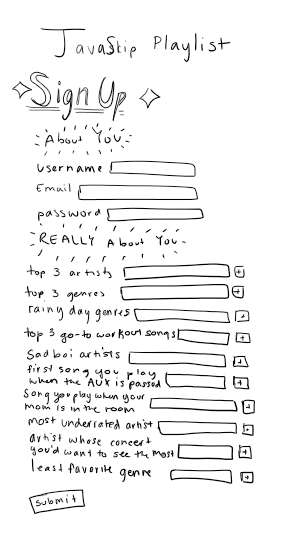 JavaSkip Playlist
Sign Up
About You
username
Email
password
REALLY About You
top 3 artists +
top 3 genres +
rainy day genres +
top 3 go-to workout songs +
Sad boi artists +
first song you play
when the AUX is passed +
Song you play when your
mom is in the room +
most underrated artist +
artist whose concert
you'd want to see the most +
least favorite genre +
submit